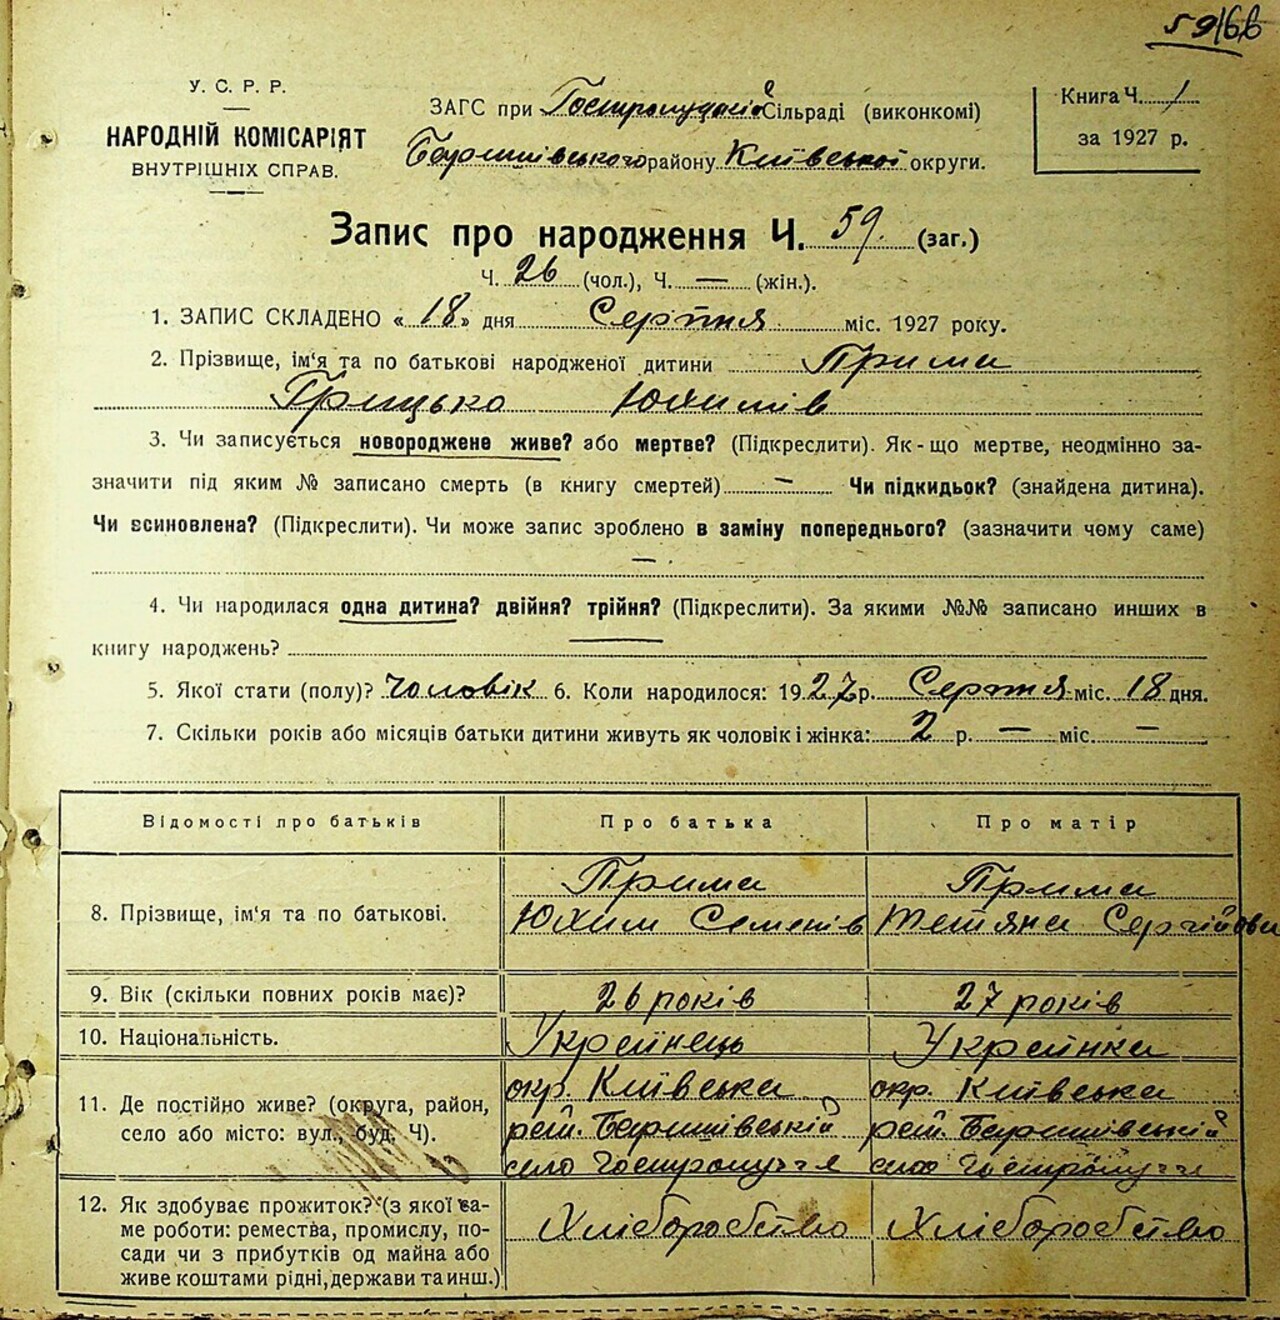 59/6в
У. С. Р. Р.
НАРОДНІЙ КОМІСАРІЯТ
ВНУТРІШНІХ СПРАВ.
ЗАГС при Гостролуцькій Сільраді (виконкомі)
Баришівського району Київської округи.
Книга Ч. 1
за 1927 р.
Запис про народження Ч. 59. (заг.)
Ч. 26 (чол.), Ч. — (жін.).
1. ЗАПИС СКЛАДЕНО «18» дня Серпня міс. 1927 року.
2. Прізвище, ім'я та по батькові народженої дитини Прима
Грицько Юхимів
3. Чи записується новороджене живе? або мертве? (Підкреслити). Як-що мертве, неодмінно за-
значити під яким № записано смерть (в книгу смертей) — Чи підкидьок? (знайдена дитина).
Чи всиновлена? (Підкреслити). Чи може запис зроблено в заміну попереднього? (зазначити чому саме)
—
4. Чи народилася одна дитина? двійня? трійня? (Підкреслити). За якими №№ записано инших в
книгу народжень?
5. Якої стати (полу)? Чоловік 6. Коли народилося: 1927 р. Серпня міс. 18 дня.
7. Скільки років або місяців батьки дитини живуть як чоловік і жінка: 2 р. — міс. —
Відомості про батьків Про батька Про матір
8. Прізвище, ім'я та по батькові. Прима Прима
Юхим Семенів Тетяна Сергійовн
9. Вік (скільки повних років має)? 26 років 27 років
10. Національність. Українець Українка
11. Де постійно живе? (округа, район, окр. Київська окр. Київська
село або місто: вул., буд. Ч). рай. Баришівській рай. Баришівській
село Гостролуччя село Гостролуччя
12. Як здобуває прожиток? (з якої са- Хліборобство Хліборобство
ме роботи: ремества, промислу, по-
сади чи з прибутків од майна або
живе коштами рідні, держави та инш.)